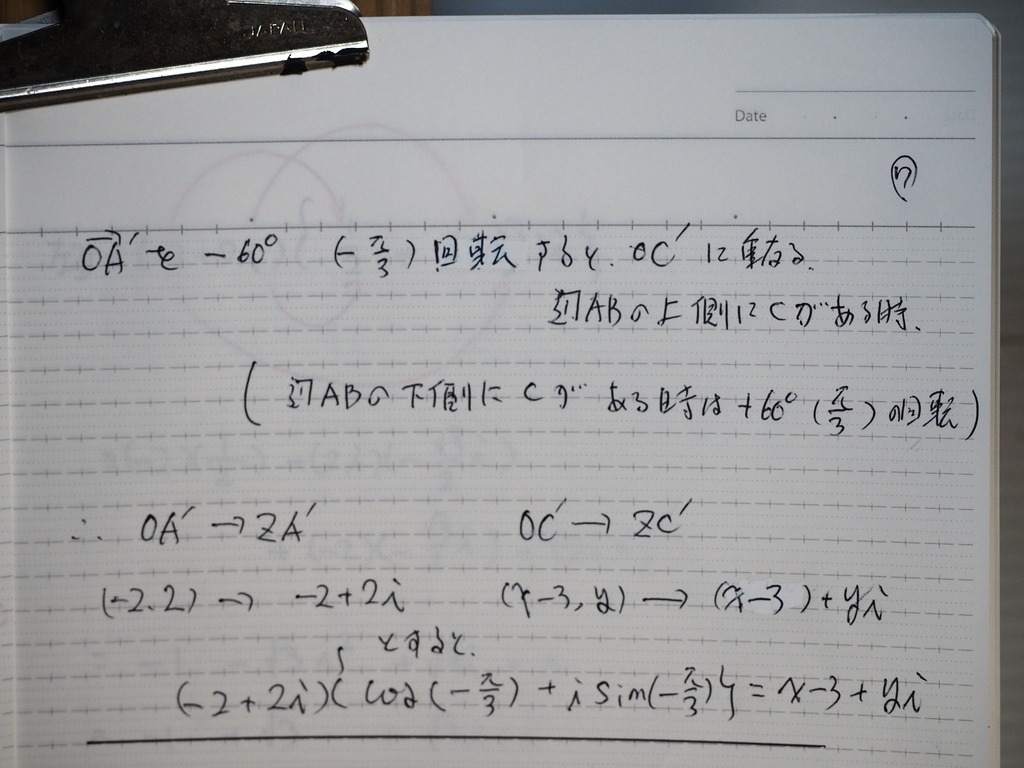 JAPAN
Date
㋒
OA'を -60° (-π/3) 回転すると、OC' に重なる。
辺ABの上側にCがある時、
( 辺ABの下側にCがある時は +60° (π/3) の回転 )
∴ OA' → ZA' OC' → ZC'
(-2.2) → -2+2i (x-3, y) → (x-3)+yi
とすると、
(-2+2i){ cos(-π/3) + i sin(-π/3)} = x-3+yi